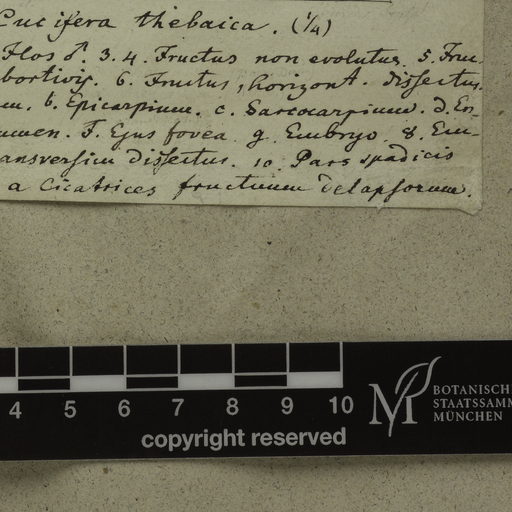 Cucifera thebaica. (1/4)
Flos ♂. 3. 4. Fructus non evolutus. 5. Fruc-
bortivis. 6. Fructus, horizont. dissectus.
um. b. Epicarpium. c. Sarcocarpium. d. En-
umen. F. Ejus fovea. g. Embryo. 8. Em-
ansversim dissectus. 10. Pars spadicis
a Cicatrices fructuum delapsorum.
4 5 6 7 8 9 10
copyright reserved
BOTANISCHE
STAATSSAMM
MÜNCHEN